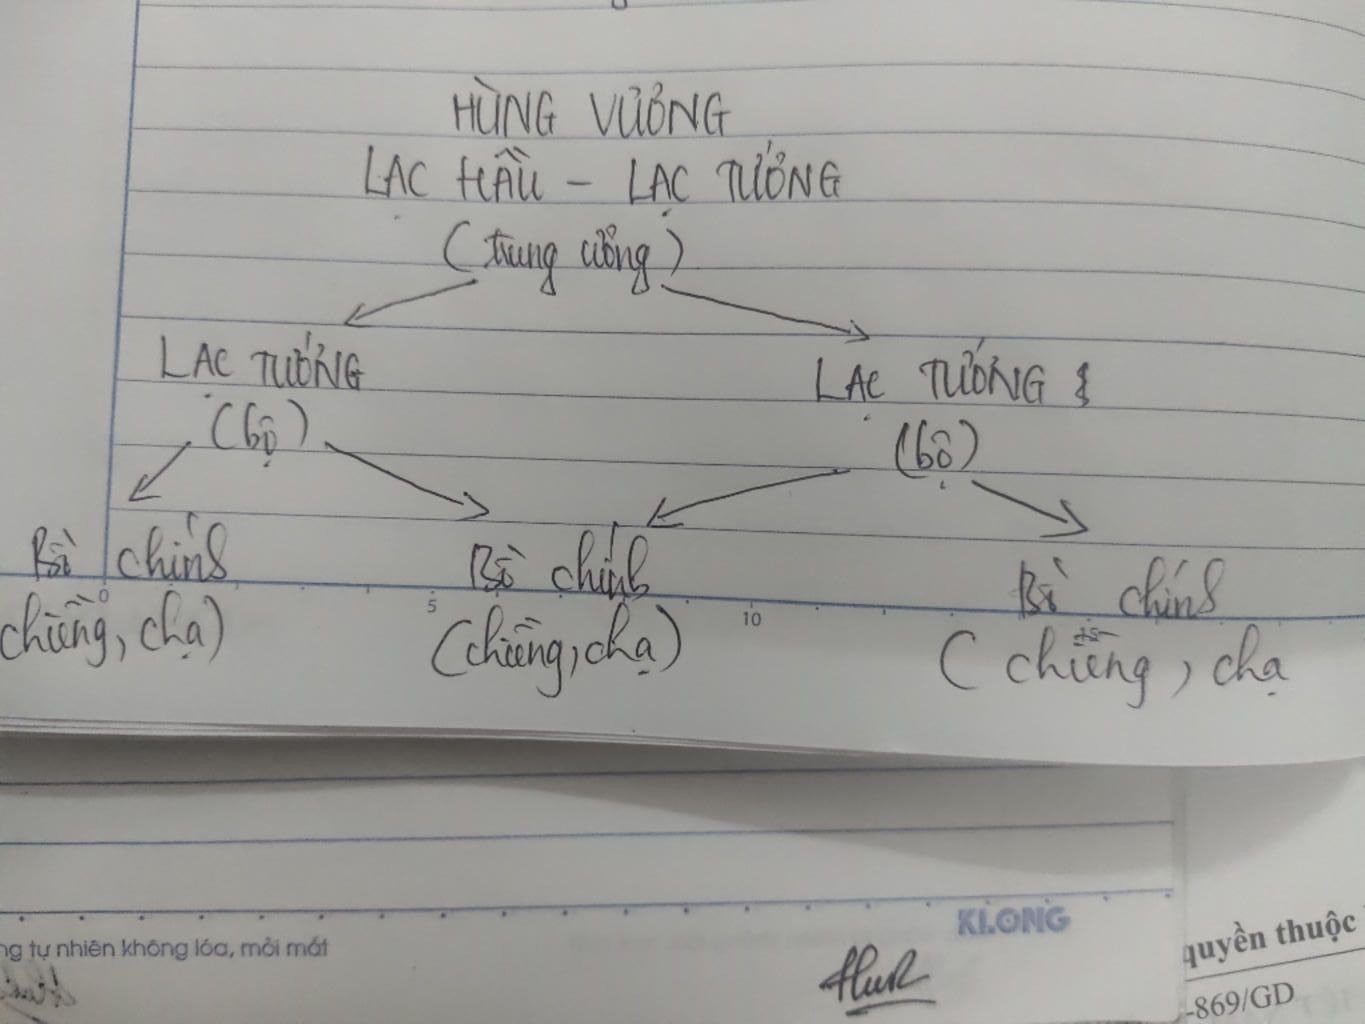 HÙNG VƯƠNG
LẠC HẦU - LẠC TƯỚNG
(trung ương)
LẠC TƯỚNG
(bộ)
LẠC TƯỚNG
(bộ)
Bồ chính
(chiềng, chạ)
Bồ chính
(chiềng, chạ)
Bồ chính
(chiềng, chạ
0
5
10
15
KLONG
ng tự nhiên không lóa, mỏi mắt
quyền thuộc
-869/GD